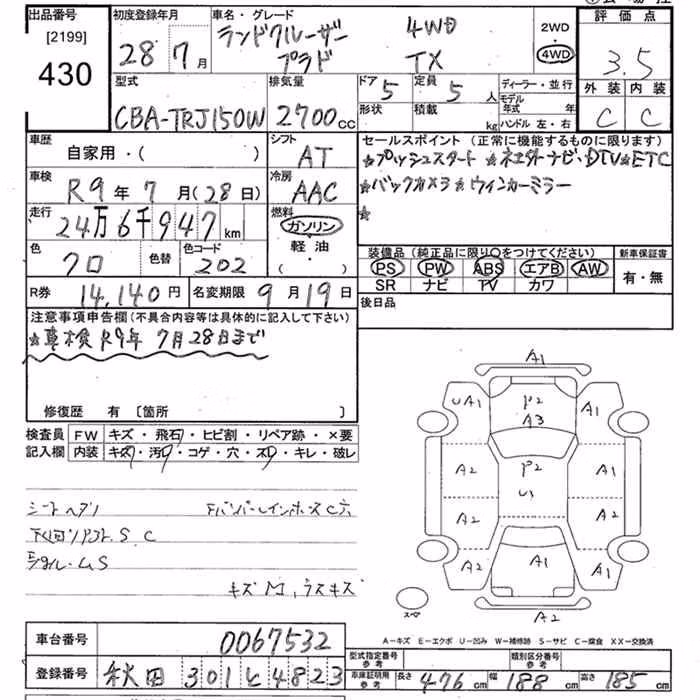 出品番号
[2199]
430
初度登録年月
28年7月
車名・グレード
ランドクルーザー 4WD
プラド TX
2WD
4WD
評価点
3.5
外装 内装
C C
型式
CBA-TRJ150W
排気量
2700cc
ドア 5
形状
定員 5人
積載 kg
ディーラー・並行
モデル年式 年
ハンドル 左・右
車歴
自家用・( )
シフト
AT
車検
R9年7月(28日)
冷房
AAC
走行
24万6千947km
燃料
ガソリン
軽油
( ・ )
色
クロ
色替
色コード
202
R券 14,140円
名変期限 9月19日
セールスポイント (正常に機能するものに限ります)
☆プッシュスタート ☆ネエトナビ・DTV☆ETC
☆バックカメラ☆ウィンカーミラー
☆
装備品(純正品に限り○をつけてください)
PS PW ABS エアB AW
SR ナビ TV カワ
新車保証書
有・無
後日品
注意事項申告欄(不具合内容等は具体的に記入して下さい)
☆車検R9年7月28日まで
修復歴 有 [箇所 ]
検査員記入欄
FW キズ・飛石・ヒビ割・リペア跡・×要
内装 キズ・汚レ・コゲ・穴・スレ・キレ・破レ
シートヘタリ
S C
S
キズ
A1
UA1 P2 A1
A3
A2 P2 A1
U1
A2 A2
A2 A1 A1
スペア
A2
A-キズ E-エクボ U-凹み W-補修跡 S-サビ C-腐食 XX-交換済
車台番号 0067532
登録番号 秋田 301 と 4823
型式指定番号 参考
類別区分番号 参考
車庫証明用 参考 長さ 476cm 幅 188cm 高さ 185cm